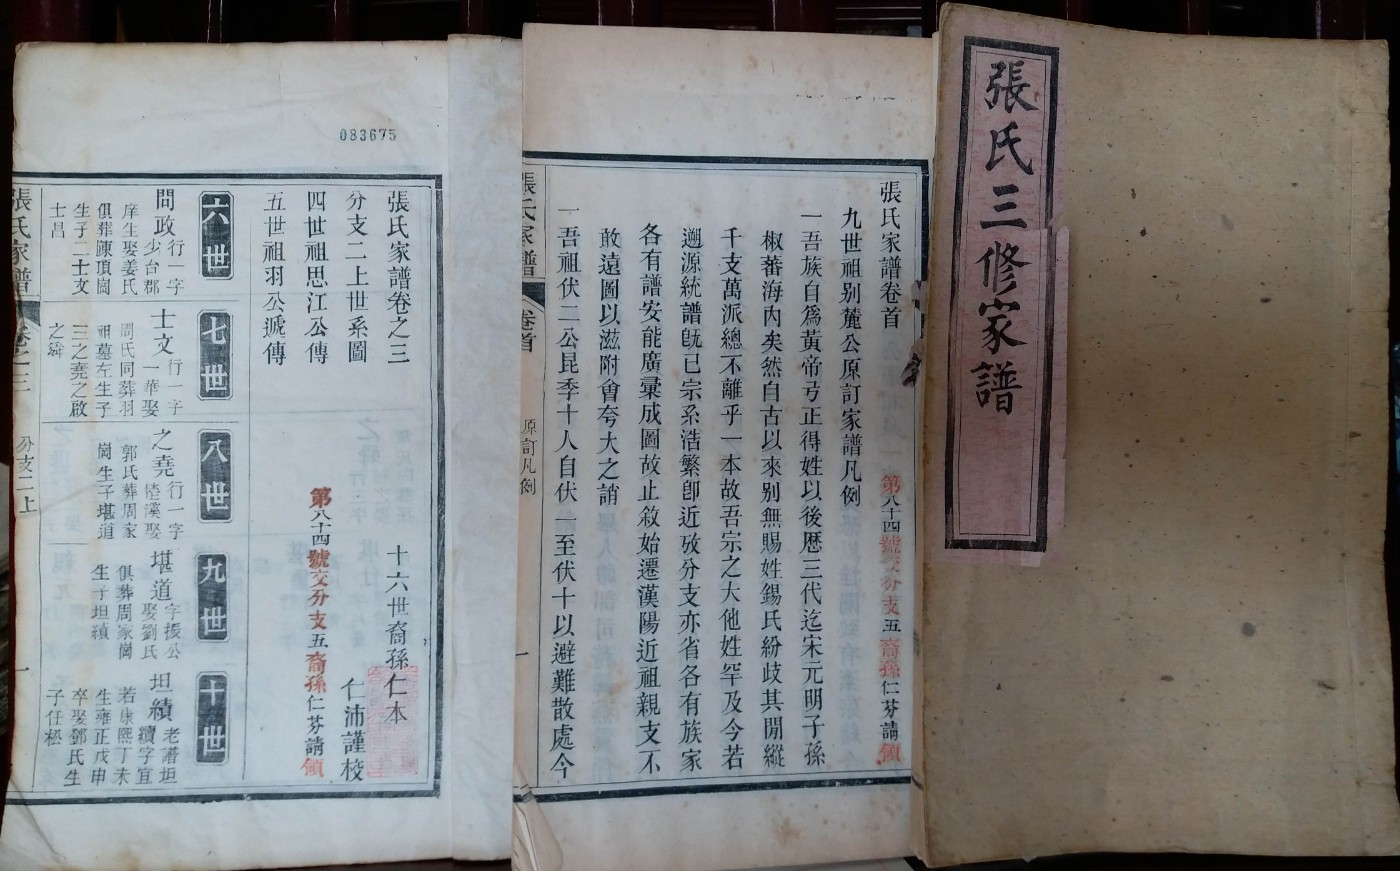 張氏三修家譜
張氏家譜卷首
第八十四號交分支五裔孫仁芬請領
九世祖别麓公原訂家譜凡例
一吾族自爲黃帝弓正得姓以後歴三代迄宋元明子孫
椒蕃海内矣然自古以來别無賜姓錫氏紛歧其閒縱
千支萬派總不離乎一本故吾宗之大他姓罕及今若
遡源統譜旣已宗系浩繁卽近攷分支亦省各有族家
各有譜安能廣彙成圖故止敘始遷漢陽近祖親支不
敢遠圖以滋附會夸大之誚
一吾祖伏二公昆季十人自伏一至伏十以避難散處今
張氏家譜
卷首
原訂凡例
一
083675
張氏家譜卷之三
十六世裔孫仁本
仁沛謹校
分支二上世系圖
四世祖思江公傳
第八十四號交分支五裔孫仁芬請領
五世祖羽公遞傳
六世
七世
八世
九世
十世
問政行一字
少台郡
庠生娶姜氏
俱葬陳頂崗
生子二士文
士昌
士文行一字
一華娶
周氏同葬羽
祖墓左生子
三之堯之啟
之舜
之堯行一字
陸漢娶
郭氏葬周家
崗生子堪道
堪道字振公
娶劉氏
俱葬周家崗
生子坦續
坦績老譜坦
續字宜
若康熙丁未
生雍正戊申
卒娶鄧氏生
子任松
張氏家譜
卷之三
分支二上
一